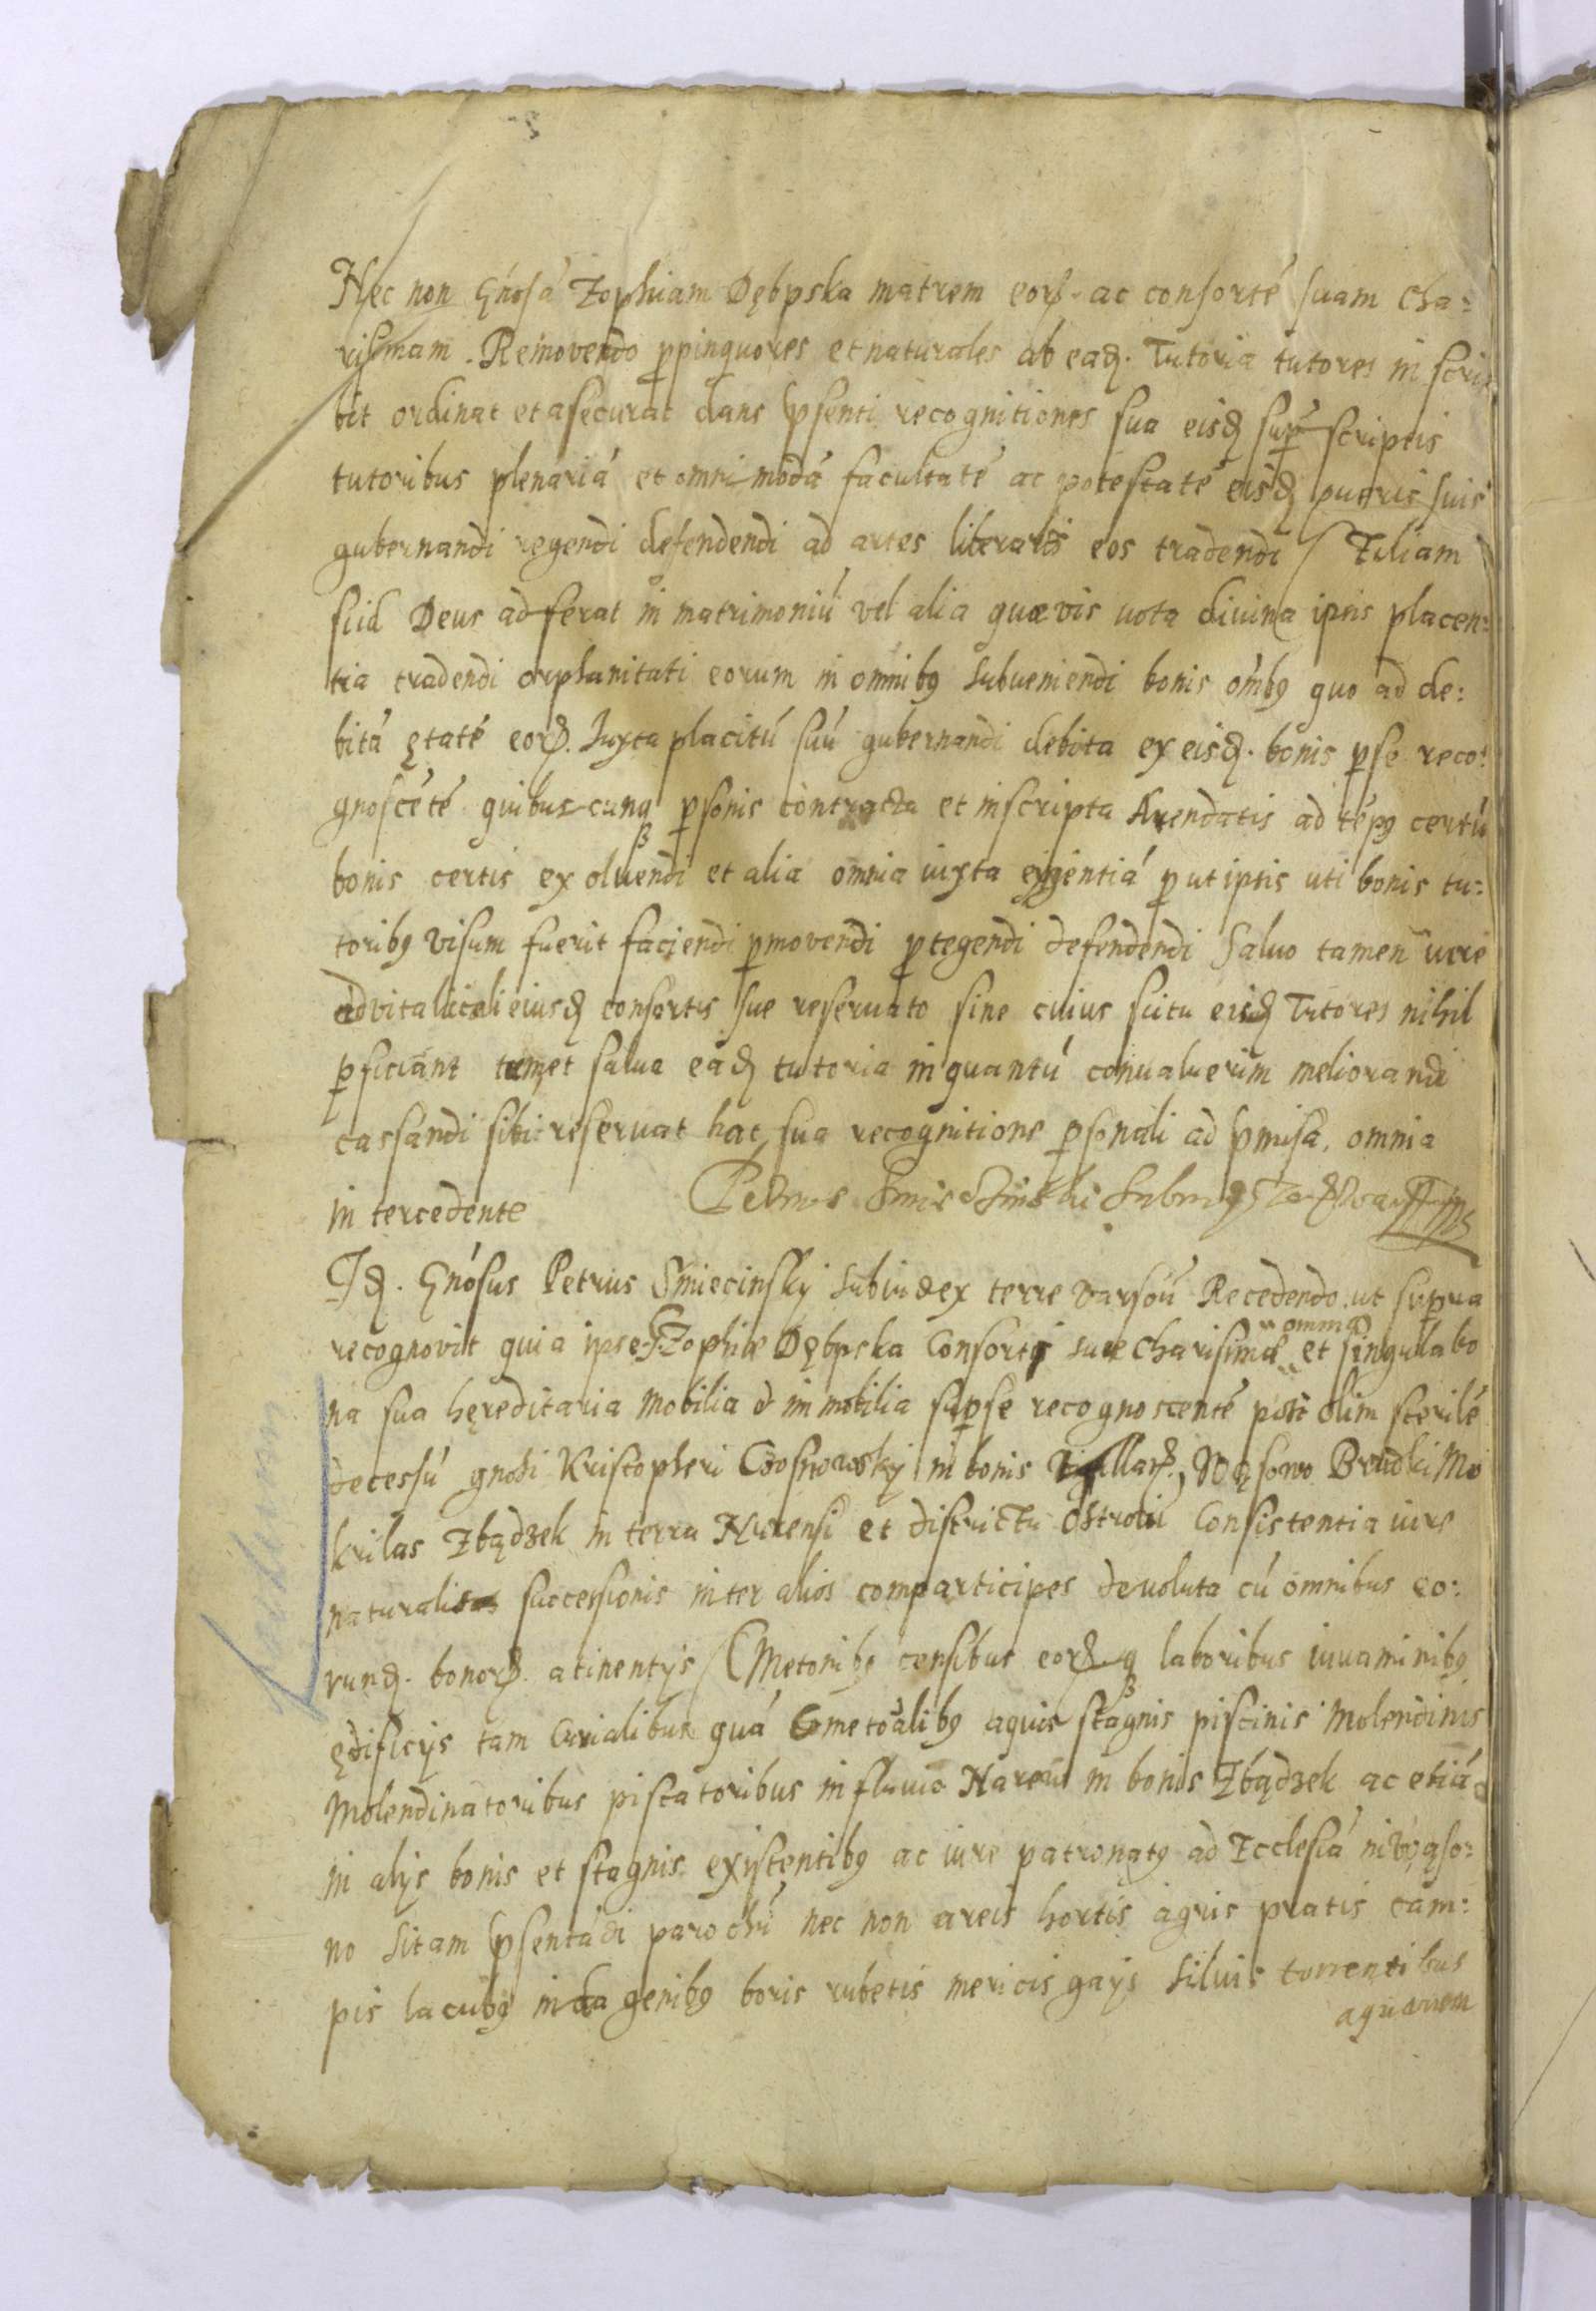 Nec non Gnosá Zophiam Dębpska matrem eorꝝ ac consorté suam cha:
rissmam. Removendo ꝓpinquores et naturales ab eadꝫ. Tutoria tutores in scri
bit ordinat et asecurat dans pśenti recognitiones sua eisdꝫ supᷓ scriptis
tutoribus plenariá et omnimodá facultaté ac potestaté eisdꝫ pueris suis
gubernandi regendi defendendi ad artes liberalis eos tradendi / Filiam
si id Deus adferat in matrimoniú vel alia quævis vota divina ipsis placen:
tia tradendi orphanitati eorum in omnibꝰ subueniendi bonis ómbꝰ quo ad de:
bitá ętaté eorꝝ. Iuxta placitú suú gubernandi debita ex eisdꝫ. bonis ꝑ se reco:
gnoscété quibus cunqꝫ ꝑsonis contracta et inscripta Arendatis ad tépꝰ certú
bonis certis exoluendi et alia omnia iuxta exigentiá ꝓ ut ipsis uti bonis tu:
toribꝰ visum fuerit faciendi ꝓmovendi ꝓtegendi defendendi Saluo tamen iure
advitalicali eiusdꝫ consortis sue reseruato sine cuius scitu eisdꝫ Tutores nihil
ꝑficiant temet salua eadꝫ tutoria in quantú conualuerim meliorandi
cassandi sibi reseruat hac sua recognitione ꝑsonali ad pmissa. omnia
in tercedente
Petrus
Idꝫ. Gnósus Petrus Smiecinskÿ Subiudex terre varsoú Recedendo ut supra
recognovit quia ipse G. Zophiæ Dębpska Consorti suæ charisimæ omnia et singula bo
na sua hęreditaria mobilia & immobilia sup se recognoscenté post olim sterilé
decessú gnosi Kristopheri Cosnowskÿ in bonis villarꝝ, Wąsowo Brudki Mo
krilas Zbądzek in terra Nurensi et districtu Ostroú Consistentia iure
naturalis successionis inter alios comparticipes devoluta cú omnibus eo:
rundꝫ. bonorꝝ. atinentÿs / Cmetonibꝰ censibus eorꝝqꝫ laboribus iuuaminibꝰ
ędificÿs tam Curialibus quá Cmetoalibꝰ aquis stagnis piscinis molendinis
molendinatoribus piscatoribus in fluuio Nareu in bonis Zbądzek ac etiá
in alÿs bonis et stagnis existentibꝰ ac iure patronatꝰ ad Ecclesiá in Wąso:
no sitam pśentádi parochú nec non areis hortis agris pratis cam:
pis lacubꝰ indagenibꝰ boris rubetis mericis gaÿs siluis torrentibus
aquarum